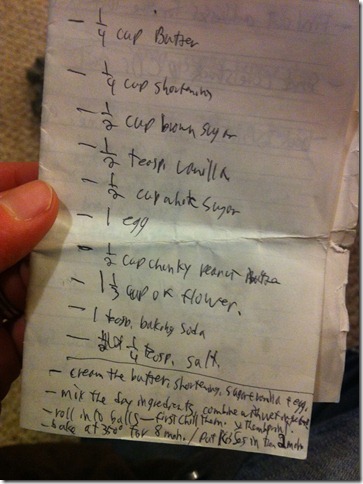 - 1/4 cup Butter
- 1/4 cup shortening
- 1/2 cup brown sugar
- 1/2 teasp. vanilla
- 1/2 cup white sugar
- 1 egg
- 1/2 cup chunky peanut butter
- 1 1/3 cup of flower.
- 1 teasp. baking soda
- 1/4 teasp. salt.
- cream the butter, shortening, sugar & vanilla & egg.
- mix the dry ingredients, combine with wet
- roll into balls - first chill them. thumbprint.
- bake at 350° for 8 min. / Put kisses in then 2 min